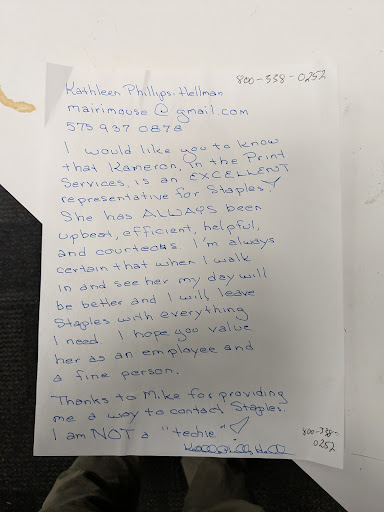 800-338-0252
Kathleen Phillips-Hellman
mairimouse@gmail.com
575 937 0878
I would like you to know
that Kameron, in the Print
Services, is an EXCELLENT
representative for Staples.
She has ALWAYS been
upbeat, efficient, helpful,
and courteous. I'm always
certain that when I walk
in and see her my day will
be better and I will leave
Staples with everything
I need. I hope you value
her as an employee and
a fine person.
Thanks to Mike for providing
me a way to contact Staples.
I am NOT a "techie"!
800-338-
0252